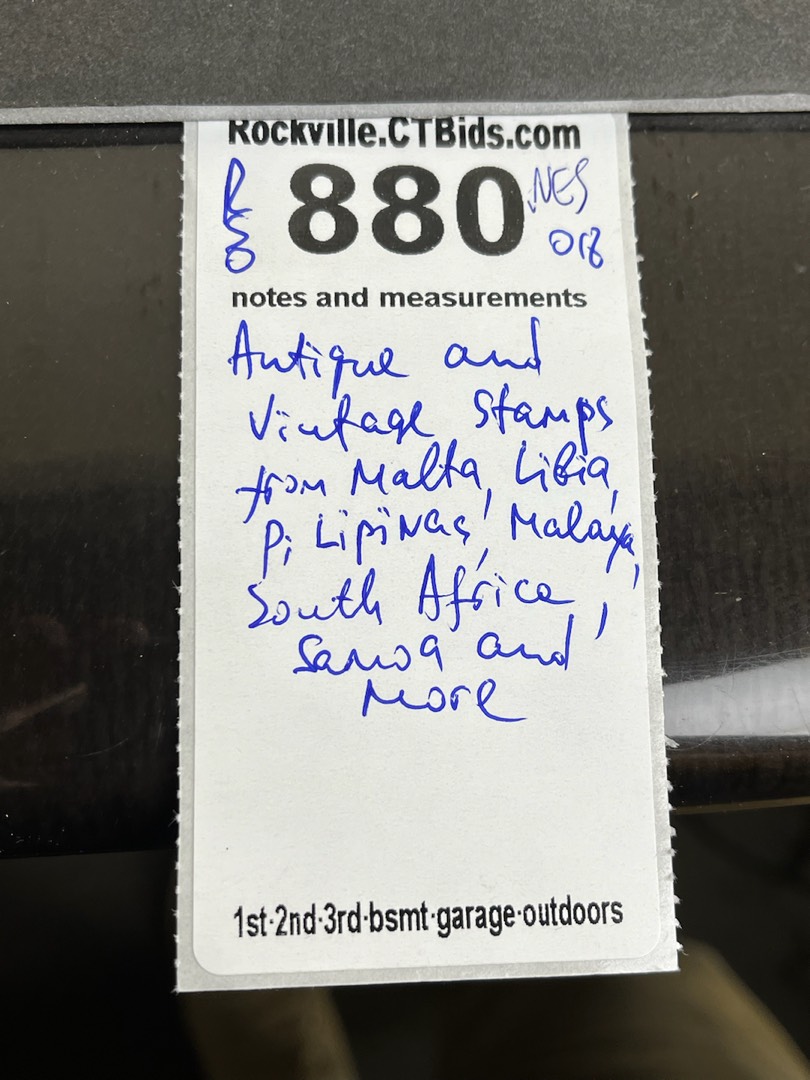 Rockville.CTBids.com
880
NES
018
notes and measurements
Antique and
Vintage Stamps
from Malta, Libia,
PiLipiNas, Malaya,
South Africa,
Samoa and
More
1st·2nd·3rd·bsmt·garage·outdoors